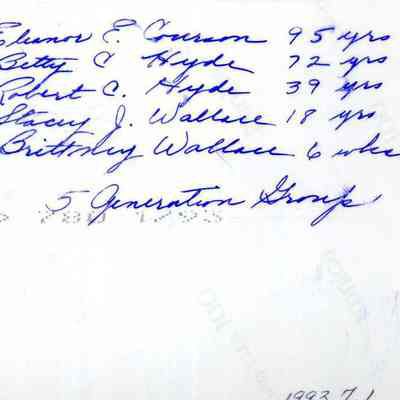 Eleanor E. Courson 95 yrs
Betty C Hyde 72 yrs
Robert C. Hyde 39 yrs
Stacey J. Wallace 18 yrs
Brittney Wallace 6 wks
5 Generation Group
1993.7.1